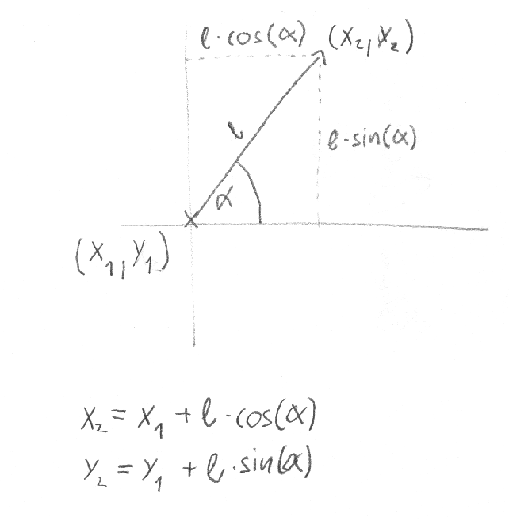 l·cos(α) (x₂, y₂)
l
l·sin(α)
α
(x₁, y₁)
x₂ = x₁ + l·cos(α)
y₂ = y₁ + l·sin(α)